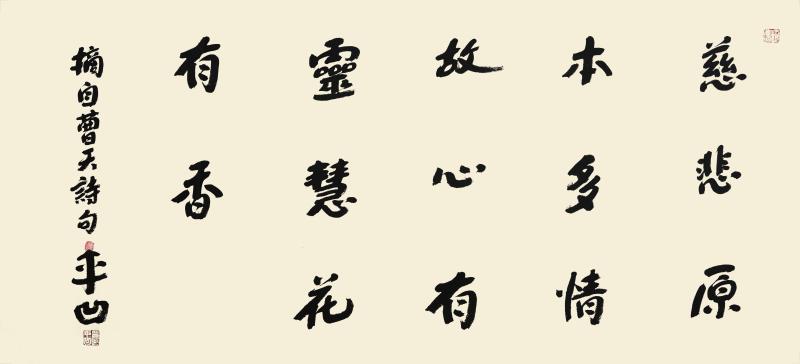 慈悲原
本多情
故心有
靈慧花
有香
摘自曹天詩句
平凹